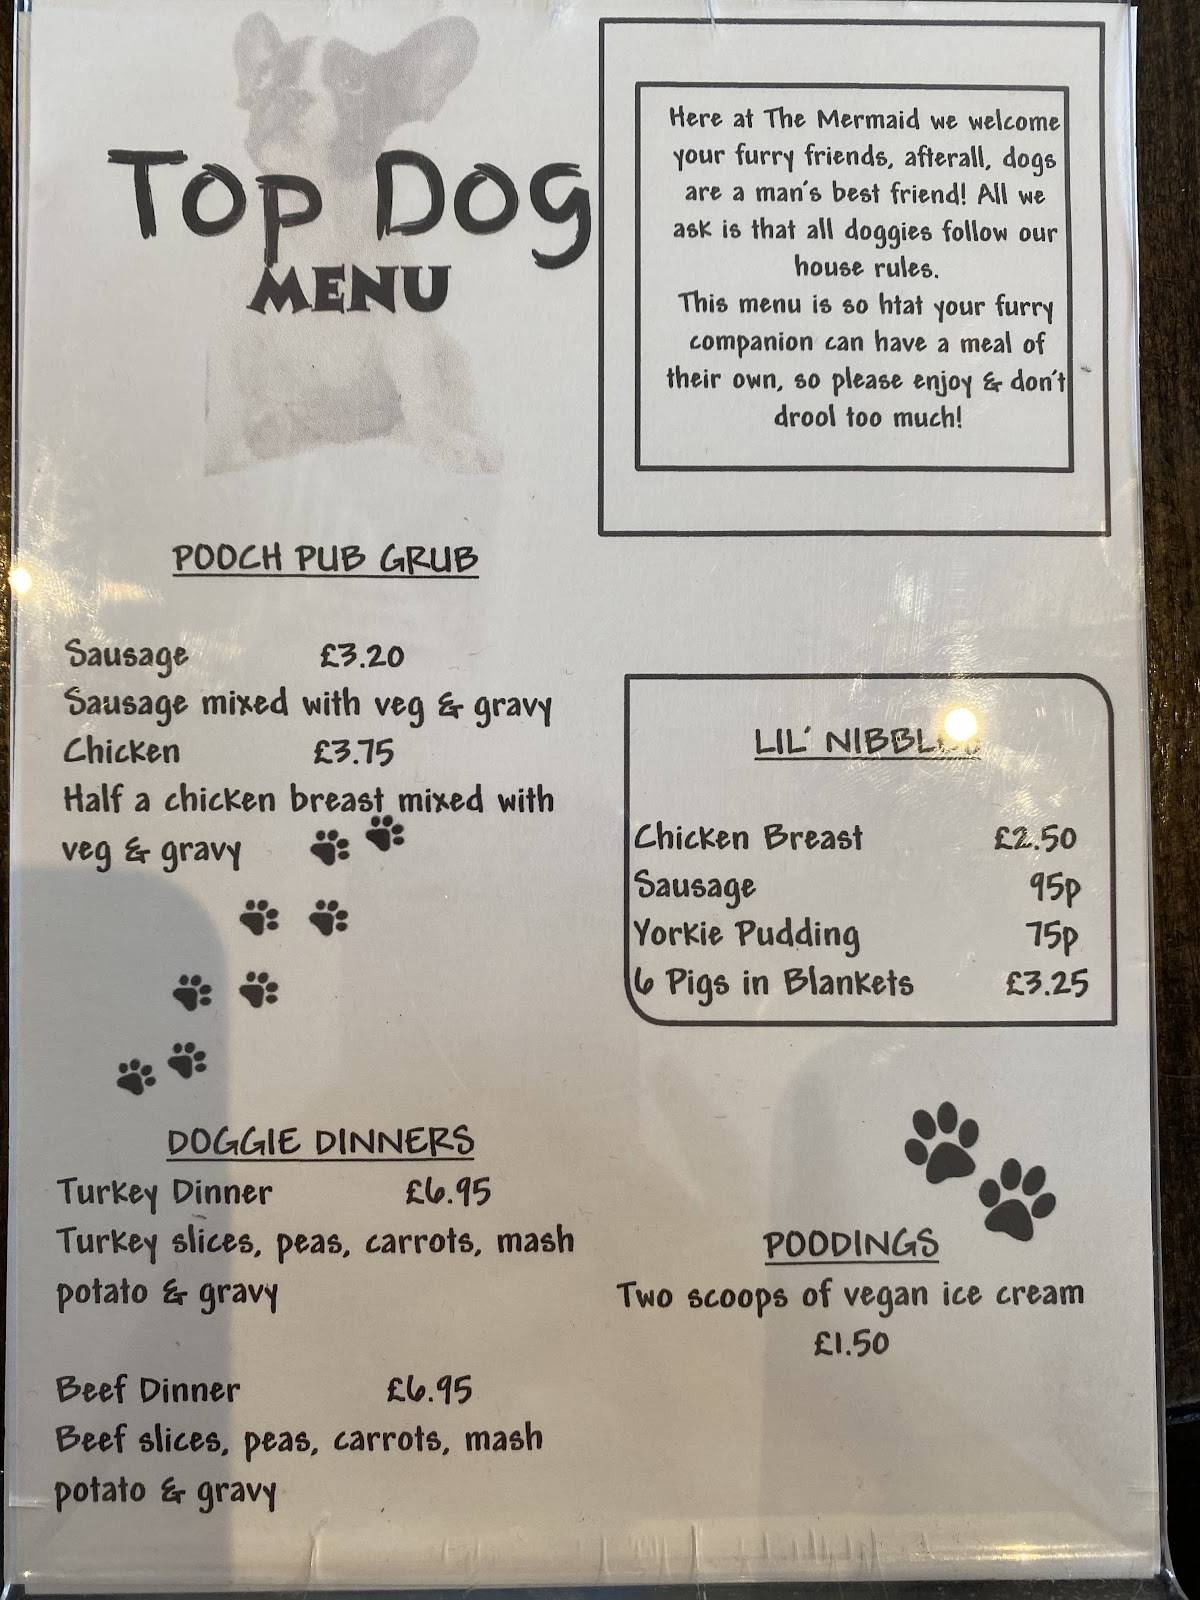 Top Dog
MENU
Here at The Mermaid we welcome
your furry friends, afterall, dogs
are a man's best friend! All we
ask is that all doggies follow our
house rules.
This menu is so htat your furry
companion can have a meal of
their own, so please enjoy & don't
drool too much!
POOCH PUB GRUB
Sausage £3.20
Sausage mixed with veg & gravy
Chicken £3.75
Half a chicken breast mixed with
veg & gravy
LIL' NIBBLES
Chicken Breast £2.50
Sausage 95p
Yorkie Pudding 75p
6 Pigs in Blankets £3.25
DOGGIE DINNERS
Turkey Dinner £6.95
Turkey slices, peas, carrots, mash
potato & gravy
Beef Dinner £6.95
Beef slices, peas, carrots, mash
potato & gravy
POODINGS
Two scoops of vegan ice cream
£1.50